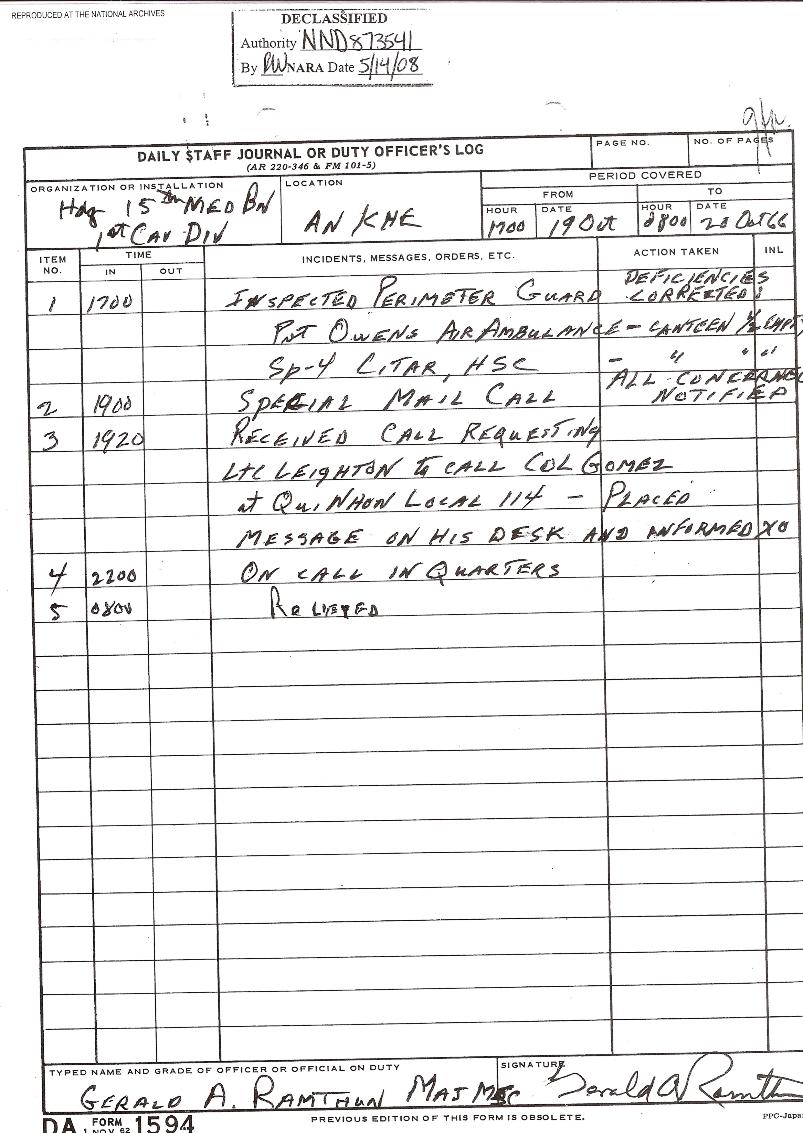 REPRODUCED AT THE NATIONAL ARCHIVES
DECLASSIFIED
Authority NND873541
By NARA Date 5/14/08
DAILY STAFF JOURNAL OR DUTY OFFICER'S LOG
(AR 220-346 & FM 101-5)
PAGE NO.
NO. OF PAGES
ORGANIZATION OR INSTALLATION
Hdq 15th MED BN
1st CAV DIV
LOCATION
AN KHE
PERIOD COVERED
FROM
TO
HOUR DATE HOUR DATE
1700 19 Oct 0800 20 Oct 66
ITEM NO.
TIME
IN OUT
INCIDENTS, MESSAGES, ORDERS, ETC.
ACTION TAKEN
INL
1 1700 INSPECTED PERIMETER GUARD DEFICIENCIES CORRECTED:
PVT OWENS AIR AMBULANCE - CANTEEN 1/2 EMPTY
SP-4 CITAR, HSC - " " "
2 1900 SPECIAL MAIL CALL ALL CONCERNED NOTIFIED
3 1920 RECEIVED CALL REQUESTING
LTC LEIGHTON to CALL COL GOMEZ
at QUI NHON LOCAL 114 - PLACED
MESSAGE ON HIS DESK AND INFORMED XO
4 2200 ON CALL IN QUARTERS
5 0800 RELIEVED
TYPED NAME AND GRADE OF OFFICER OR OFFICIAL ON DUTY
GERALD A. RAMTHUN MAJ MSC
SIGNATURE
Gerald A Ramthun
DA FORM 1 NOV 62 1594
PREVIOUS EDITION OF THIS FORM IS OBSOLETE.
PPC-Japan